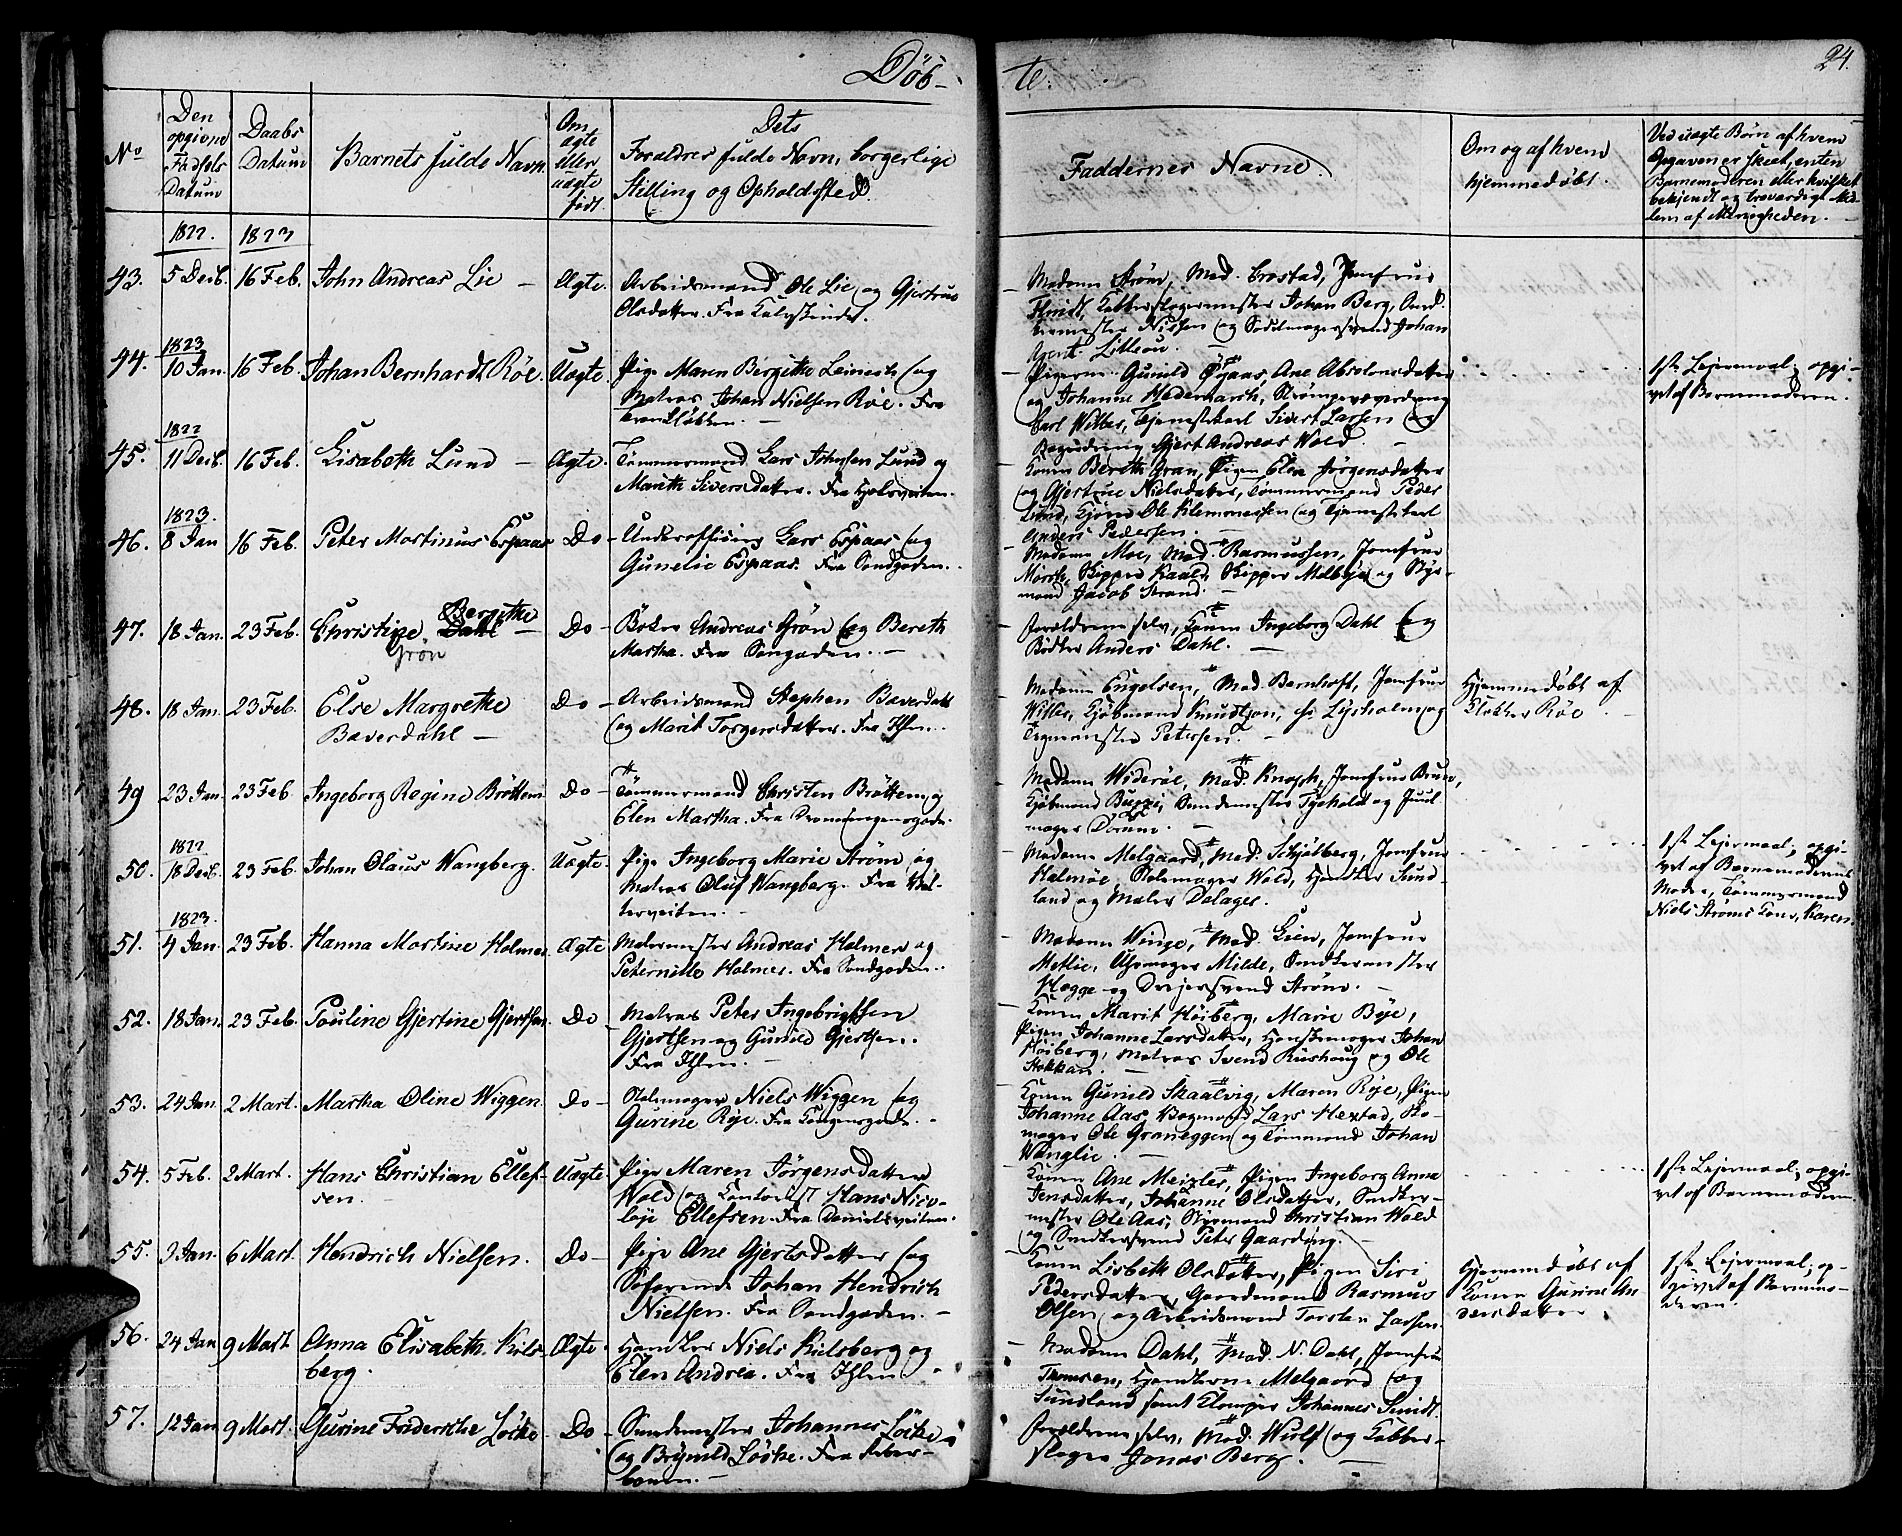 Døb-
te.
24.
No
Den
opgivne
Fødsels
Datum
Daabs
Datum
Barnets fulde Navn.
Om
ægte
eller
uægte
født.
Dets
Forældres fulde Navn, borgerlige
Stilling og Opholdssted.
Faddernes Navne.
Om og af hvem
hjemmedøbt.
Ved uægte Børn af hvem
Opgaven er skeet, enten
Barnemoderen eller hvilket
bekjendt og troværdigt Med-
lem af Menigheden.
1822. 1823
43. 5 Decb. 16 Feb. John Andreas Lie - Ægte.
Arbeidsmand Ole Lie og Gjertrud
Olsdatter. Fra Kalvskindet.
Madame Strøm, Mad. Brostad, Jomfrue
Kobberslagermester Johan Berg,
Nissen og Sadelmagersvend Johan
1823
44. 10 Jan. 16 Feb. Johan Bernhardt Röe. Uægte.
Pige Maren Bergitte Leinesch og
Matros Johan Nielsen Röe. Fra
Pigerne Gunild Øyaas, Ane Absolonsdatter
og Johanne Hedemarch,
Carl Wilber, Tjenestekarl Sivert Larsen og
Gjert Andreas Wold.
1ste Leiermaal; opgi-
vet af Barnemoderen.
1822
45. 11 Decb. 16 Feb. Lisabeth Lund - Ægte.
Tømmermand Lars Johnsen Lund og
Mareth Siversdatter. Fra
Konen Bereth Gran, Pigen Elen Jørgensdatter
og Gjertrue Nielsdatter, Tømmermand Peder
Lund, Ole Klemmetsen og Tjenestekarl
Anders Pedersen.
1823.
46. 8 Jan 16 Feb. Peter Martinus Espaas Do -
Underofficier Lars Espaas og
Gunelie Espaas. Fra Sandgaden.
Madame Moe, Mad. Rasmussen, Jomfrue
Mørch, Skipper Kaald, Skipper Melbye og Styr-
mand Jacob Strand.
47. 18 Jan. 23 Feb. Christine Bergithe
Dahl
Grön
Do -
Andreas Grön og Bereth
Martha. Fra
Forældrene selv, Konen Ingeborg Dahl og
Bödker Anders Dahl.
48. 18 Jan. 23 Feb. Else Margrethe
Bæverdahl -
Do -
Arbeidsmand Stephen Bæverdahl
og Marit Torgersdatter. Fra Ihlen.
Madame Engelsen, Mad. Bernhoft, Jomfrue
Wilber, Kjøbmand Knudtzon, Hr Lysholm og
Petersen.
Hjemmedøbt af
Klokker Röe.
49 23 Jan. 23 Feb. Ingeborg Regine Bröttem Do -
Tømmermand Christen Bröttem og
Elen Martha. Fra Dronningensgade.
Madame Wideröe, Mad. Knoph, Jomfrue Bruun,
Kjøbmand Tyehold og
mager
1822
50. 18 Decb. 23 Feb. Johan Olaus Wangberg. Uægte.
Pige Ingeborg Marie Strøm og
Matros Oluf Wangberg. Fra
Madame Melgaard, Mad. Schjølberg, Jomfrue
Halmöe, Wold, Handler Sund-
land og Maler Dalager.
1ste Leiermaal; opgi-
vet af Barnemoderens
Moder, Tømmermand
Niels Strøms Kone, Karen.
1823.
51. 4 Jan. 23 Feb. Hanna Martine Holmer Ægte
Malermester Andreas Holmer og
Peternille Holmer. Fra Sandgaden.
Madame Winge, Mad. Lien, Jomfrue
Metlie, Uhrmager Milde,
Hagge og Dreiersvend Strøm.
52. 18 Jan. 23 Feb. Pouline Gjertine Gjertsen. Do
Matros Peter Ingebrigtsen
Gjertsen og Gunild Gjertsen.
Fra Ihlen.
Konen Marit Höiberg, Marie Böje,
Pigen Johanne Larsdatter, Johan
Höiberg, Matros Svend Riishaug og Ole
Stokkan.
53. 24 Jan. 2 Mart. Martha Oline Wiggen. Do -
Niels Wiggen og
Gurine Röje. Fra Kongensgade.
Konen Gunild Skaalvig, Maren Röje, Pigen
Johanne Aas, Lars Hexstad, Sko-
mager Ole Graneggen og Tømmermand Johan
Wanglie.
54. 5 Feb. 2 Mart. Hans Christian Ellef-
sen.
Uægte
Pige Maren Jörgensdatter
Wold og Hans Nico-
laje Ellefsen. Fra Danielsveiten.
Konen Ane Meizler, Pigen Ingeborg Anna
Jensdatter, Johanne Olsdatter, Snedker-
mester Ole Aas, Styrmand Christian Wold
og Snedkersvend Peter Gaarding.
1ste Leiermaal; opgi-
vet af Barnemoderen.
55. 2 Jan. 6 Mart. Hendrich Nielsen. Do -
Pige Ane Gjertsdatter og
Søfarende Johan Hendrich
Nielsen. Fra Sandgaden.
Konen Lisbeth Olsdatter, Pigen Siri
Pedersdatter, Gaardmand Rasmus
Olsen og Arbeidsmand Torsten Larsen
Hjemmedøbt af
Konen Gurine An-
dersdatter
1ste Leiermaal; op-
givet af Barnemo-
deren.
56. 24 Jan 9 Mart. Anna Elisabeth Kils-
berg.
Ægte.
Handler Niels Kilsberg og
Elen Andrea. Fra Ihlen.
Madame Dahl, Mad. N. Dahl, Jomfrue
Thomsen, Handlerne Melgaard og
Sundland samt Klamper Johannes Smidt.
57. 12 Jan 9 Mart. Gurine Fridericke Löcke. Do -
Johannes Löcke
og Brynild Löcke. Fra
Forældrene selv, Mad. Wulf og Kobber-
slager Jonas Berg.